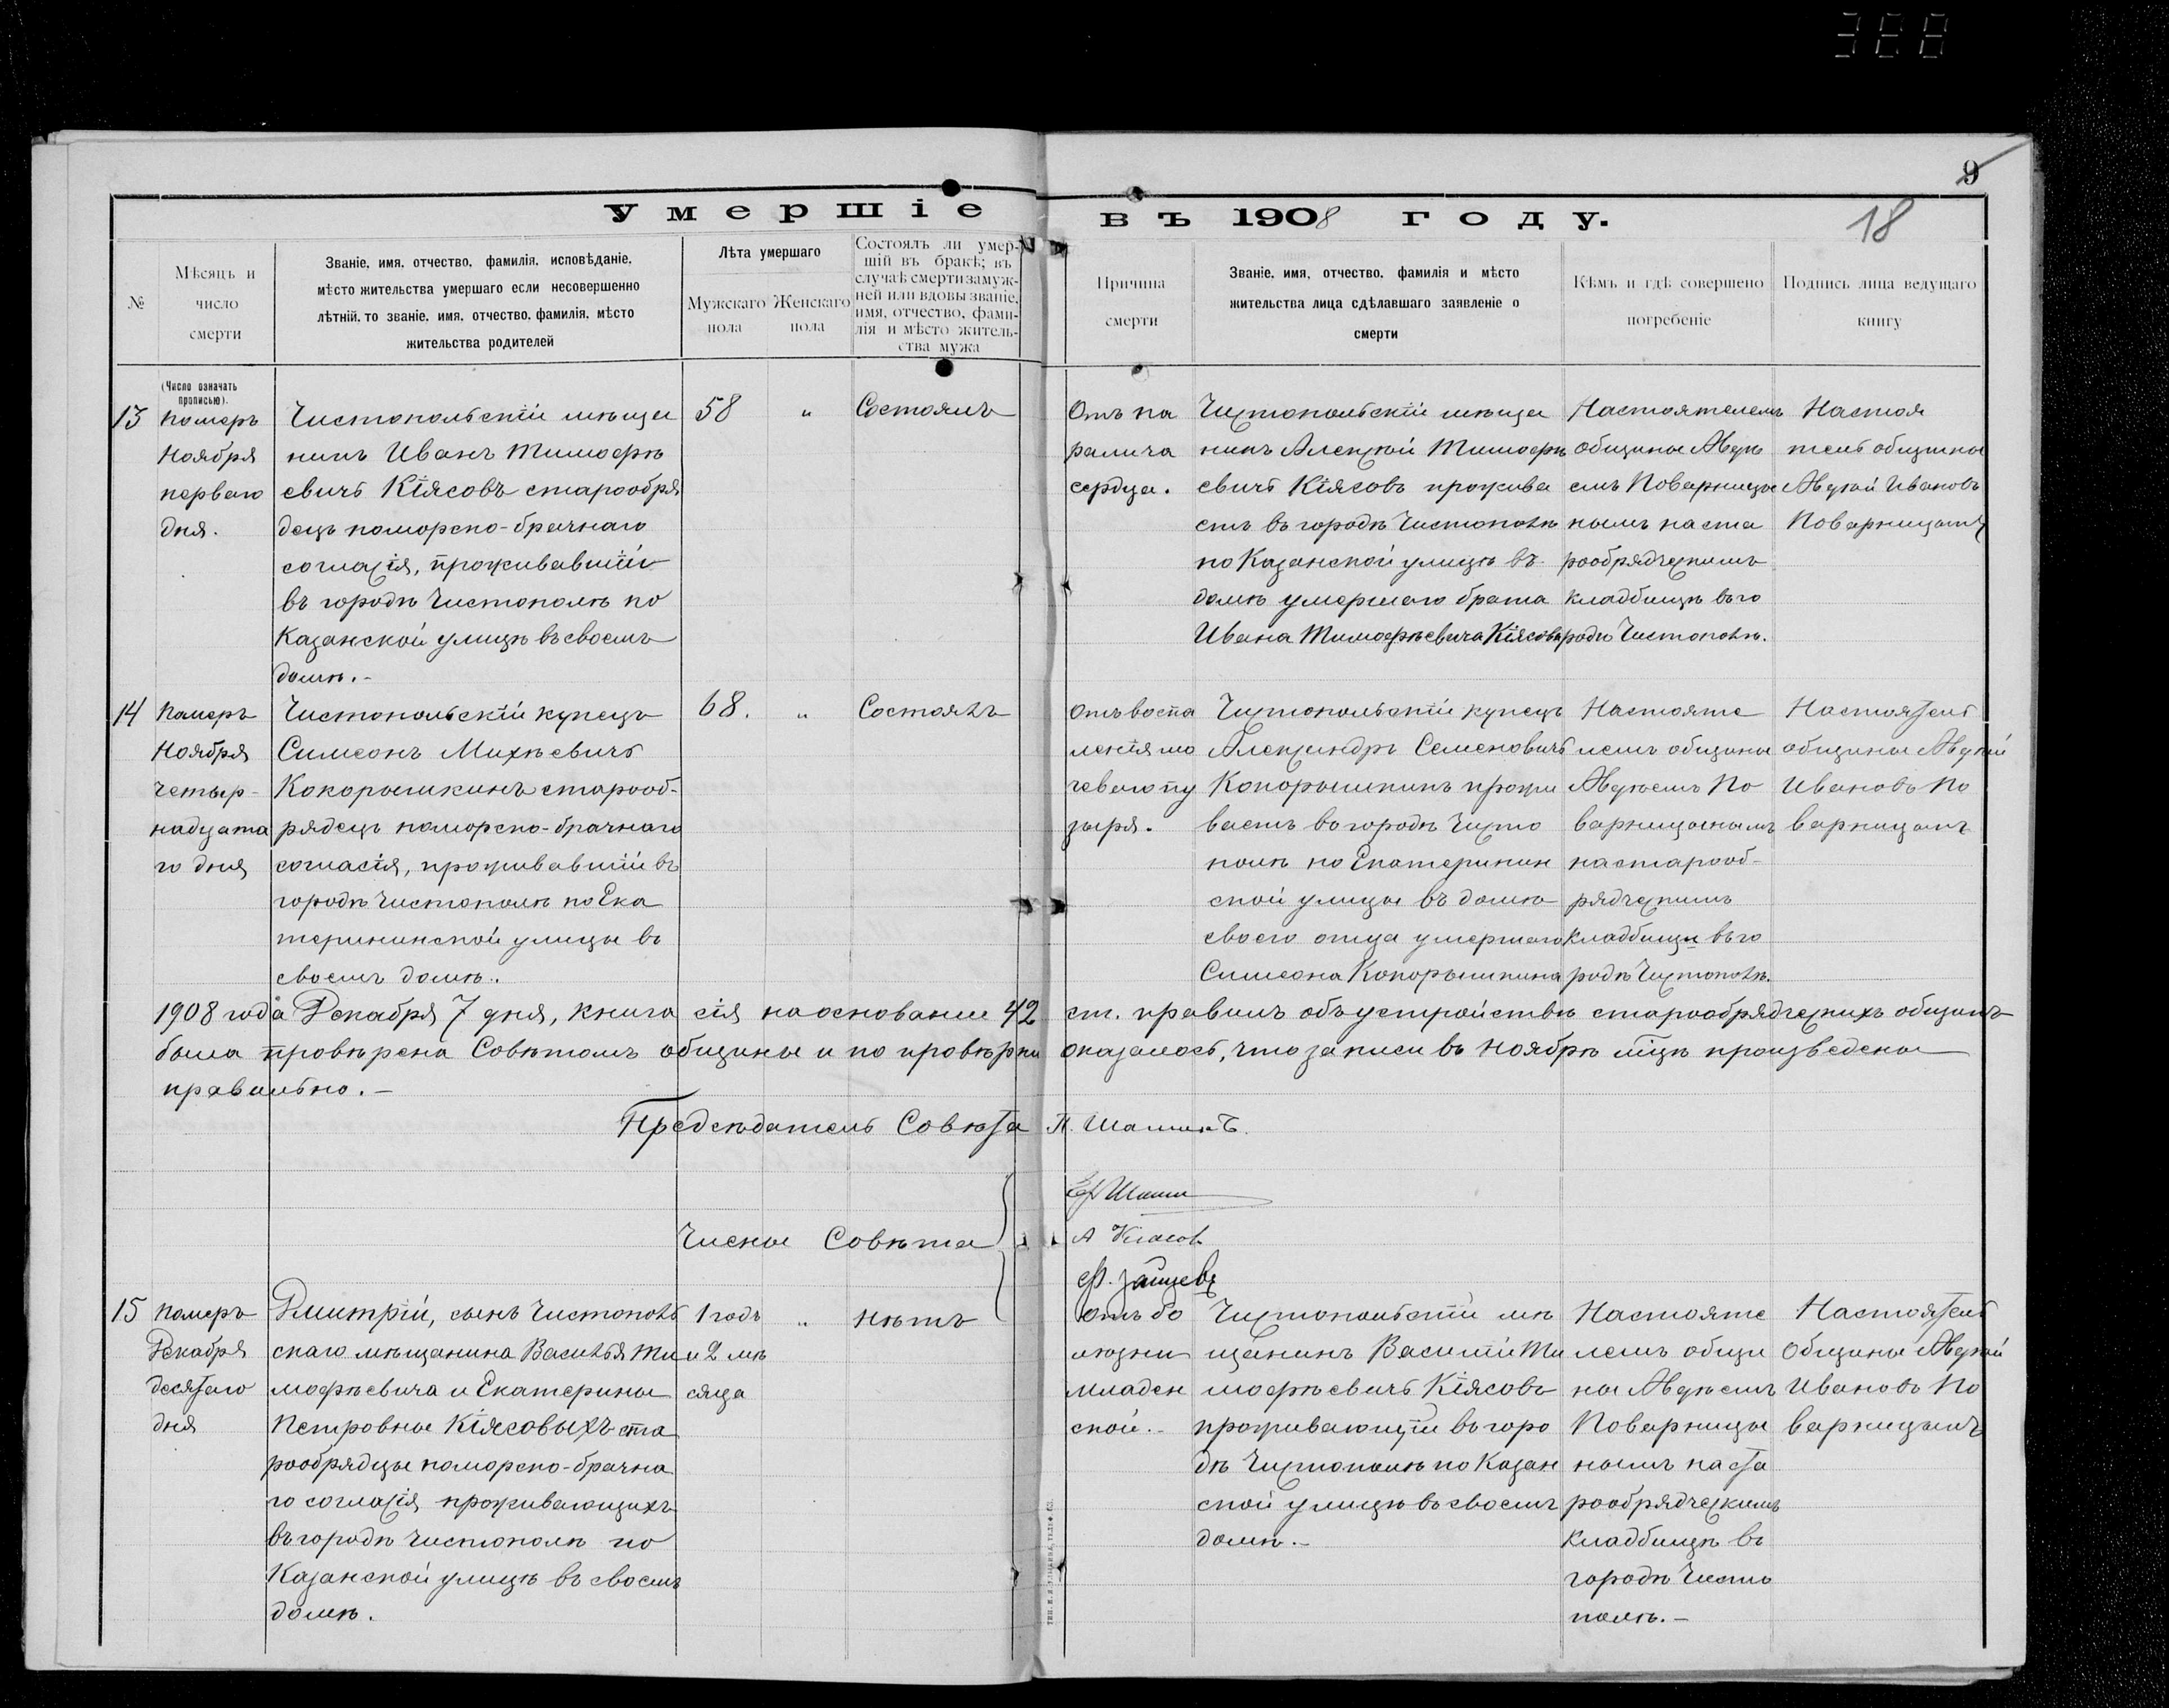 388
9
18
Умершіе въ 1908 году.
№
Мѣсяцъ и
число
смерти
Званіе, имя, отчество, фамилія, исповѣданіе,
мѣсто жительства умершаго если несовершенно
лѣтній, то званіе, имя, отчество, фамилія, мѣсто
жительства родителей
Лѣта умершаго
Мужскаго
пола
Женскаго
пола
Состоялъ ли умер-
шій въ бракѣ; въ
случаѣ смерти замуж-
ней или вдовы званіе,
имя, отчество, фами-
лія и мѣсто житель-
ства мужа
Причина
смерти
Званіе, имя, отчество, фамилія и мѣсто
жительства лица сдѣлавшаго заявленіе о
смерти
Кѣмъ и гдѣ совершено
погребеніе
Подпись лица ведущаго
книгу
(Число означать
прописью).
13
Померъ
Ноября
перваго
дня.
Чистопольскій мѣща
нинъ Иванъ Тимофѣ
евичъ Кіясовъ старообря
децъ поморско-брачнаго
согласія, проживавшій
въ городѣ Чистополѣ по
Казанской улицѣ въ своемъ
домѣ.-
58
"
Состоялъ
Отъ па
ралича
сердца.
Чистопольскій мѣща
нинъ Алексѣй Тимофѣ
евичъ Кіясовъ прожива
етъ въ городѣ Чистополѣ
по Казанской улицѣ въ
домѣ умершаго брата
Ивана Тимофѣевича Кіясова
Настоятелемъ
общины Авдѣ
емъ Поварницы
нымъ на ста
рообрядческимъ
кладбищѣ въ го
родѣ Чистополѣ.
Настоя
тель общины
Авдѣй Ивановъ
Поварницынъ
14
Померъ
Ноября
четыр-
надцата
го дня
Чистопольскій купецъ
Симеонъ Михѣевичъ
Кокорышкинъ старооб-
рядецъ поморско-брачнаго
согласія, проживавшій въ
городѣ Чистополѣ по Ека
терининской улицы въ
своемъ домѣ.
68.
"
Состоялъ
Отъ воспа
ленія мо
чеваго пу
зыря.
Чистопольскій купецъ
Александръ Семеновичъ
Кокорышкинъ прожи
ваетъ въ городѣ Чисто
полѣ по Екатеринин
ской улицы въ домѣ
своего отца умершаго
Симеона Кокорышкина
Настояте
лемъ общины
Авдѣемъ По
варницынымъ
на старооб-
рядческимъ
кладбищѣ въ го
родѣ Чистополѣ.
Настоятель
общины Авдѣй
Ивановъ По
варницынъ
1908 года Декабря 7 дня, книга сія на основаніе 42 ст. правилъ объ устройствѣ старообрядческихъ общинъ
была провѣрена Совѣтомъ общины и по провѣрки оказалось, что записи въ Ноябрѣ м-цѣ произведены
правильно.-
Предсѣдатель Совѣта П. Шашинъ.
Члены Совѣта
А Кіясов
Ф. Зайцевъ
15
Померъ
Декабря
десятаго
дня
Дмитрій, сынъ Чистополь
скаго мѣщанина Василья Ти
мофѣевича и Екатерины
Петровны Кіясовыхъ ста
рообрядцы поморско-брачна
го согласія проживающихъ
въ городѣ Чистополѣ по
Казанской улицѣ въ своемъ
домѣ.
1 годъ
и 2 мѣ
сяца
"
нѣтъ
отъ бо
лѣзни
младен
ской.-
Чистопольскій мѣ
щанинъ Василій Ти
мофѣевичъ Кіясовъ
проживающій въ горо
дѣ Чистополѣ по Казан
ской улицѣ въ своемъ
домѣ.-
Настояте
лемъ общи
ны Авдѣемъ
Поварницы
нымъ на ста
рообрядческимъ
кладбищѣ въ
городѣ Чисто
полѣ.-
Настоятель
Общины Авдѣй
Ивановъ По
варницынъ